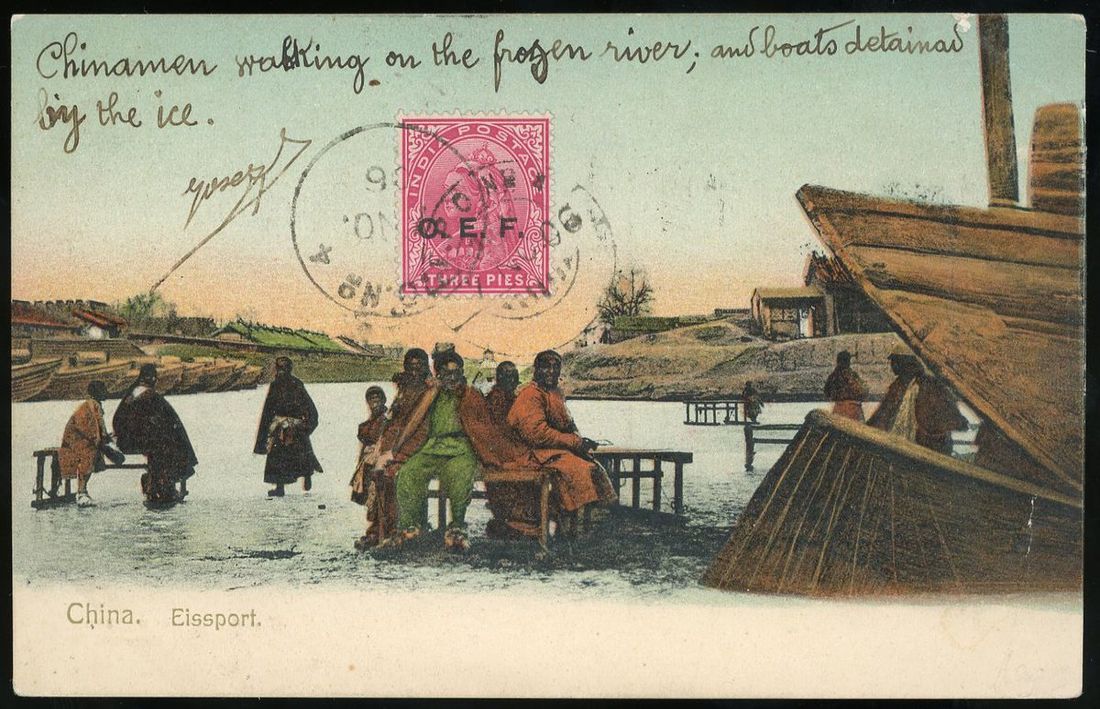 Chinamen walking on the frozen river; and boats detained
by the ice.
Joseph
INDIA POSTAGE
C. E. F.
THREE PIES
China. Eissport.